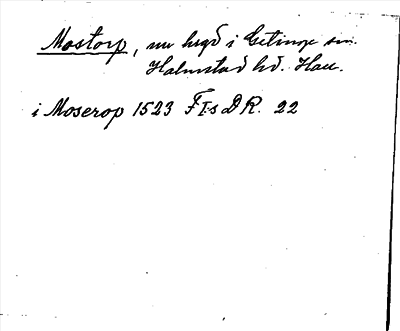 Mostorp, nu bygd i Getinge sn.
Halmstad hd. Hall.
i Moserop 1523 F I:s D R. 22